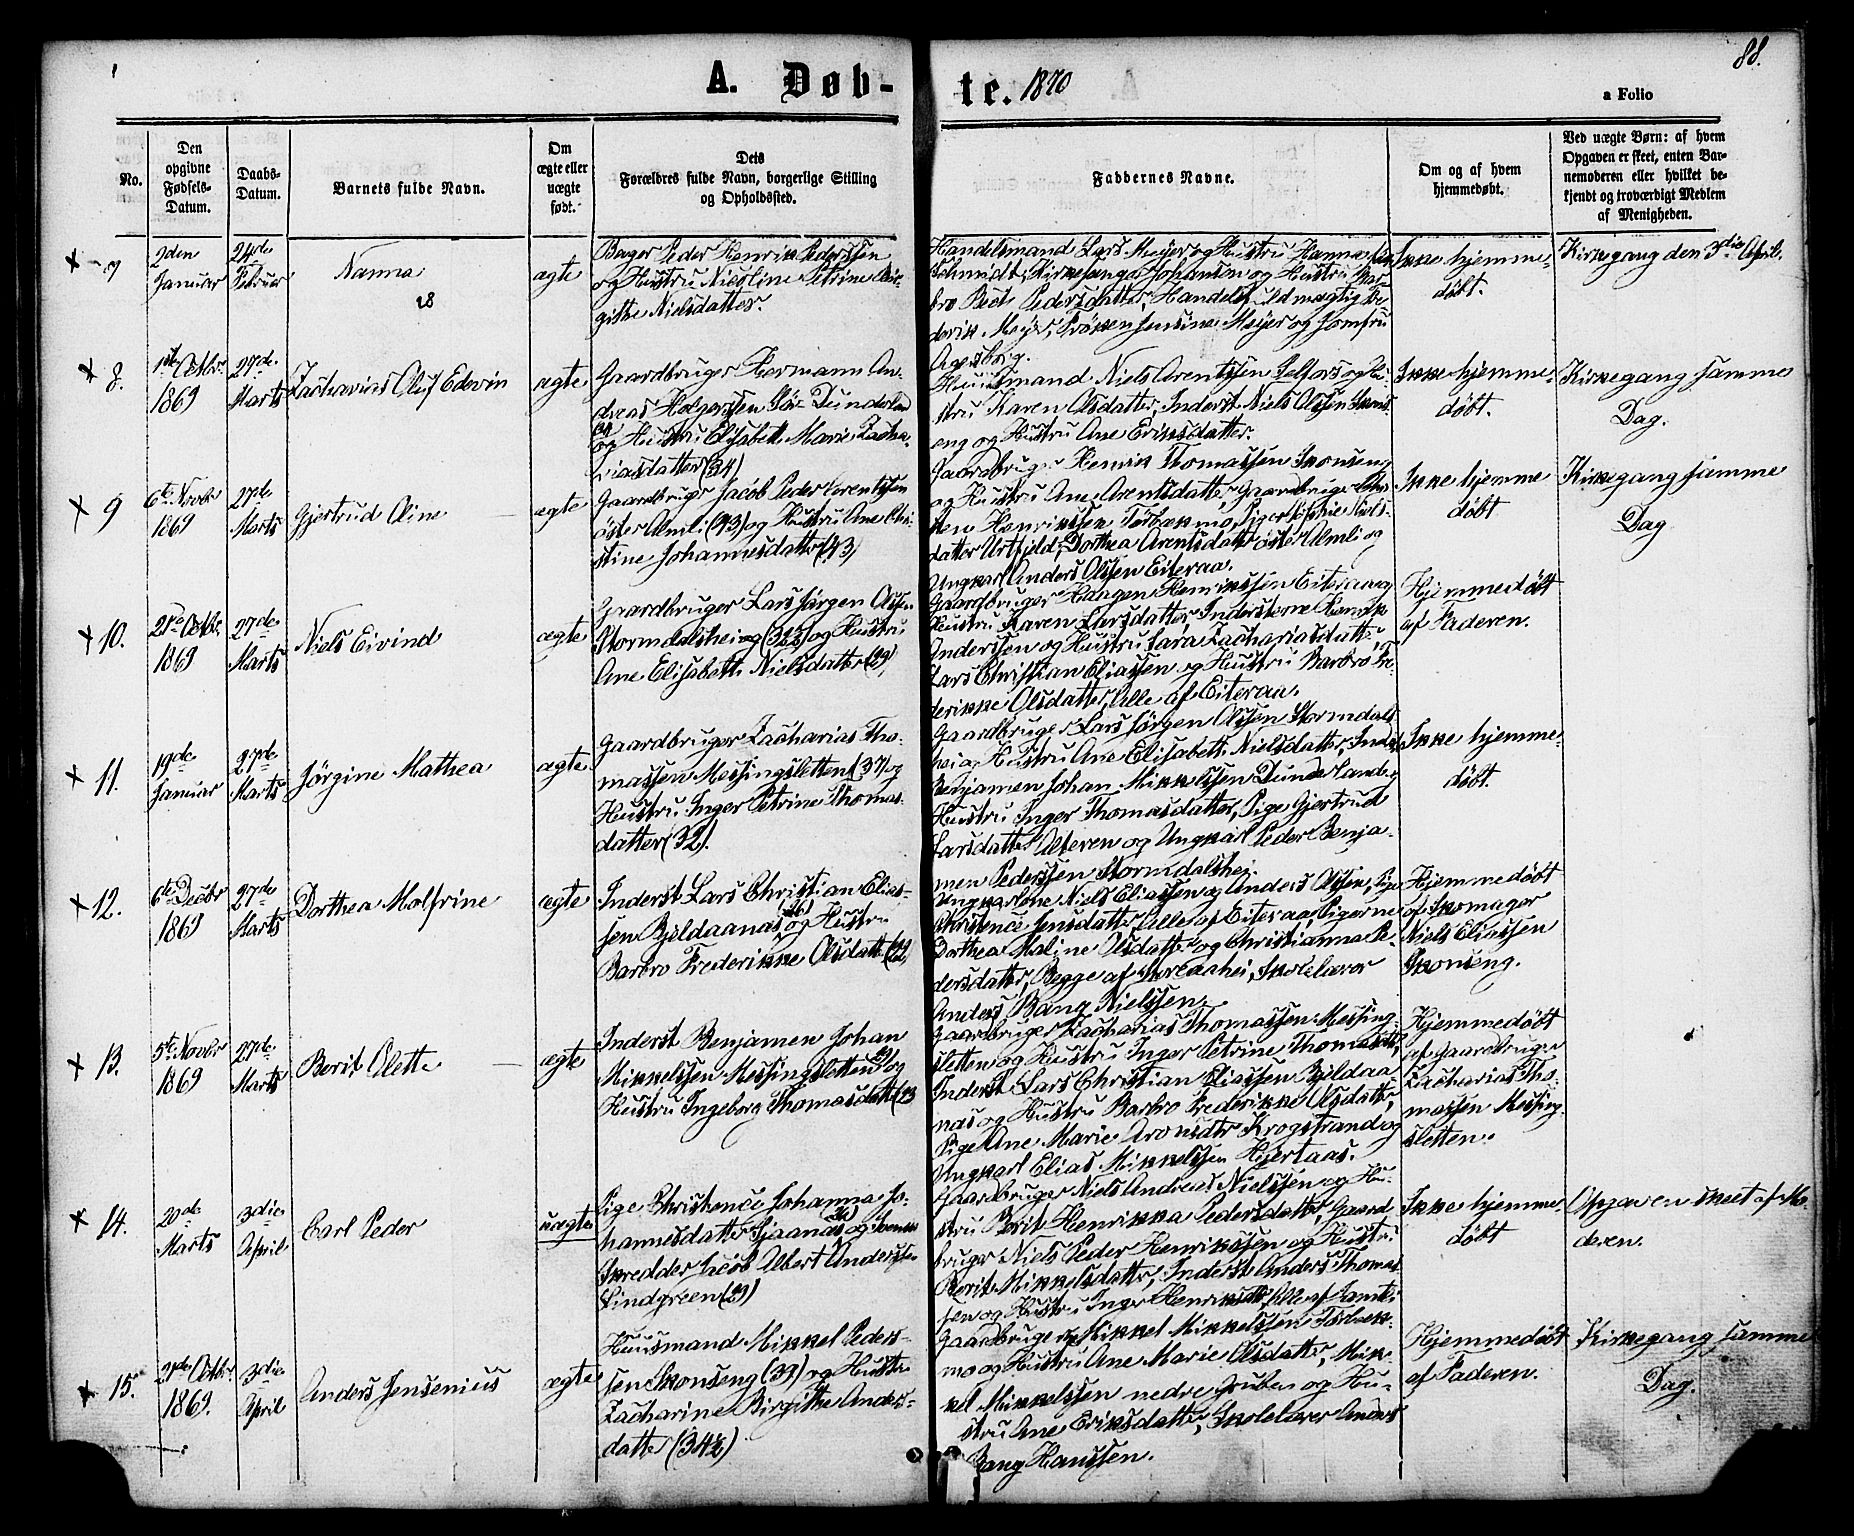 88.
A. Døb-te. 1870
a Folio
No.
Den opgivne Fødsels-Datum.
Daabs-Datum.
Barnets fulde Navn.
Om ægte eller uægte født.
Dets Forældres fulde Navn, borgerlige Stilling og Opholdssted.
Faddernes Navne.
Om og af hvem hjemmedøbt.
Ved uægte Børn: af hvem Opgaven er skeet, enten Barnemoderen eller hvilket bekjendt og troværdigt Medlem af Menigheden.
7
2den Januar
24de Februar
Nanna
ægte
Peder Henrik Pederssen
og Hustru Nicoline Petrine Bir-
githe Nielsdatter.
Handelsmand Lars Meyer og Hustru Hanna
Schmidt, Kirkesanger Johansen og Hustru Bar-
bro Pedersdatter, Handelsfuldmægtig Fre-
derik Meyer, Frøken Jensine Meyer og Jomfru
Ikke hjemme-
døbt.
Kirkegang den 3die April.
8.
1ste Octbr. 1869
27de Marts
Zacharias Oluf Edevin
ægte
Gaardbruger Hermann An-
dreas Holgerssen Dunderland
og Hustru Elisabeth Marie Zacha-
riasdatter (34)
Huusmand Niels Arentsen Selfors og Hu-
stru Karen Olsdatter, Inderst Niels Olssen Skons-
eng og Hustru Ane Eriksdatter.
Ikke hjemme-
døbt.
Kirkegang samme
Dag.
9
6te Novbr 1869
27de Marts
Gjertrud Oline
ægte
Gaardbruger Jacob Peder Arentssen
øster Almli (43) og Hustru Ane Chri-
stine Johannesdatter (43)
Gaardbruger Henrik Thomassen Skonseng
og Hustru Ane Arentsdatter, Gaardbruger
Henrikssen Tørbækmo, Sophie Niels-
datter Urtfjeld, Dorthea Arentsdatter øster Almli og
Ungkarl Anders Olssen Eiteraa.
Ikke hjemme
døbt
Kirkegang samme
Dag
10.
21de Octbr. 1869
27de Marts
Niels Eivind
ægte
Gaardbruger Lars Jørgen Olssen
Stormdalshei og Hustru
Ane Elisabeth Nielsdatter (29)
Gaardbruger Henrikssen Eiteraa og
Hustru Karen Larsdatter, Inderstene Henrik
Anderssen og Hustru Sara Zachariasdatter
Lars Christian Eliassen og Hustru Barbro Fre-
derikke Olsdatter, Alle af Eiteraa.
Hjemmedøbt
af Faderen.
11.
19de Januar
27de Marts
Jørgine Mathea
ægte
Gaardbruger Zacharias Tho-
massen Messingsletten (37) og
Hustru Inger Petrine Thomas-
datter (32).
Gaardbruger Lars Jørgen Olssen Stormdals-
hei og Hustru Ane Elisabeth Nielsdatter,
Benjamen Johan Mikkelssen Dunderland og
Hustru Inger Thomasdatter, Pige Gjertrud
Larsdatter Alteren og Ungkarl Peder Benja-
men Pederssen Stormdalshei.
Ikke hjemme-
døbt.
12.
6te Decbr 1869
27de Marts
Dorthea Molfrine
ægte
Inderst Lars Christian Elias-
sen Bjeldaanæs og Hustru
Barbro Frederikke Olsdatter
Ungkarlene Niels Eliassen og Anders Olssen, Pige
Christence Jensdatter, Alle af Eiteraa, Pigerne
Dorthea Maline Olsdatter og Christianna Pe-
dersdatter, Begge af Storaahei, Skolelærer
Anders Bang Nielssen.
Hjemmedøbt
af Skomager
Niels Eliassen
Skonseng.
13.
5te Novbr 1869
27de Marts
Berit Olette
ægte
Inderst Benjamen Johan
Mikkelssen Messingsletten og
Hustru Ingeborg Thomasdatter
Gaardbruger Zacharias Thomassen Messing-
sletten og Hustru Inger Petrine Thomasdatter,
Inderst Lars Christian Eliassen Bjeldaa-
næs og Hustru Barbro Frederikke Olsdatter,
Pige Ane Marie Aronsdtr Krogstrand og
Ungkarl Elias Mikkelssen Hjertaas.
Hjemmedøbt
af Gaardbruger
Zacharias Tho-
massen Messing-
sletten.
14.
20de Marts
3die April
Carl Peder
uægte
Pige Christence Johanna Jo-
hannesdatter og Svensk
Skredder Jacob Albert Anderssen
Lindgreen (29)
Gaardbruger Niels Andreas Nielssen og Hu-
stru Berit Henrikka Pedersdatter, Gaard-
bruger Niels Peder Henrikssen og Hustru
Berit Mikkelsdatter, Inderst Anders Thomas-
sen og Hustru Inger Henriksdtr, Alle af
Ikke hjemme-
døbt
Opgaven skeet af Mo-
deren.
15.
21de Octbr. 1869.
3die April
Anders Jensenius
ægte
Huusmand Mikkel Peders-
sen Skonseng (39) og Hustru
Zacharine Birgithe Anders-
datter (34½)
Gaardbruger Mikkel Mikkelssen Tørbæk-
mo og Hustru Ane Marie Olsdatter, Mik-
kel Mikkelssen nedre Gruben og Hu-
stru Ane Eriksdatter, Skolelærer Anders
Bang Hanssen.
Hjemmedøbt
af Faderen.
Kirkegang samme
Dag.